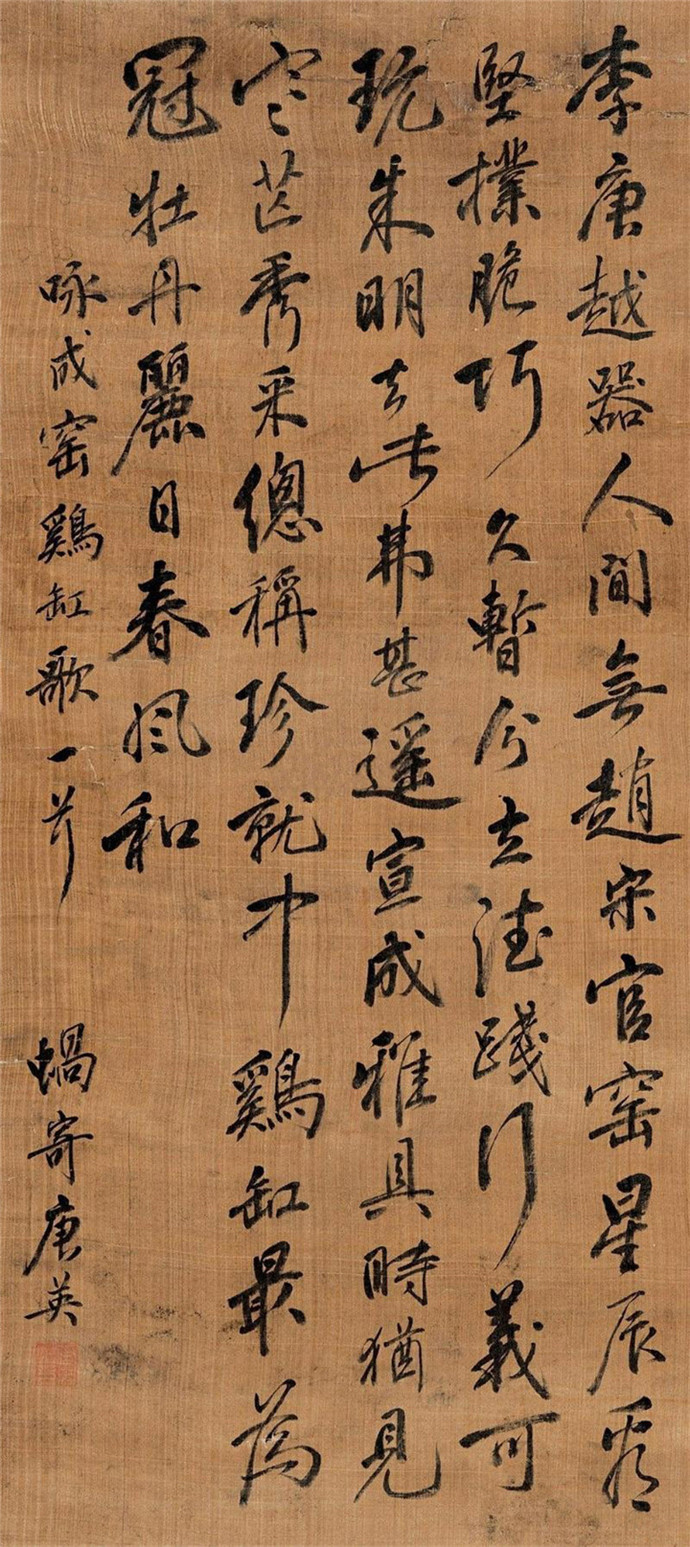 李唐越器人間無趙宋官窑星辰看
堅樸脆巧久暫分立德踐行義可
玩朱明去此弗甚遥宣成雅具時猶見
寒芒秀采總稱珍就中鷄缸最為
冠牡丹麗日春風和
咏成窑鷄缸歌一首 蝸寄唐英